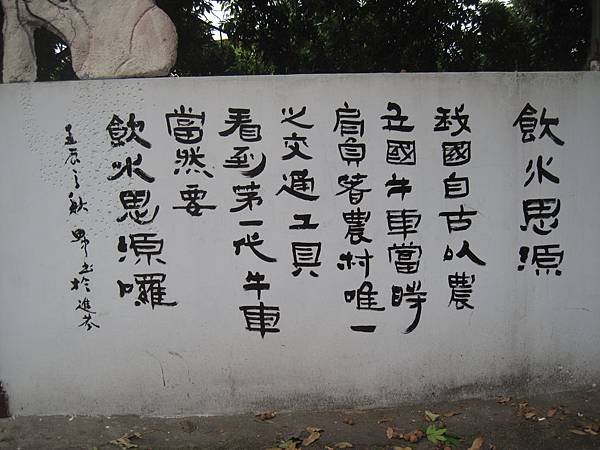 飲水思源
我國自古以農
立國牛車當時
肩負著農村唯一
之交通工具
看到第一代牛車
當然要
飲水思源囉
壬辰之秋